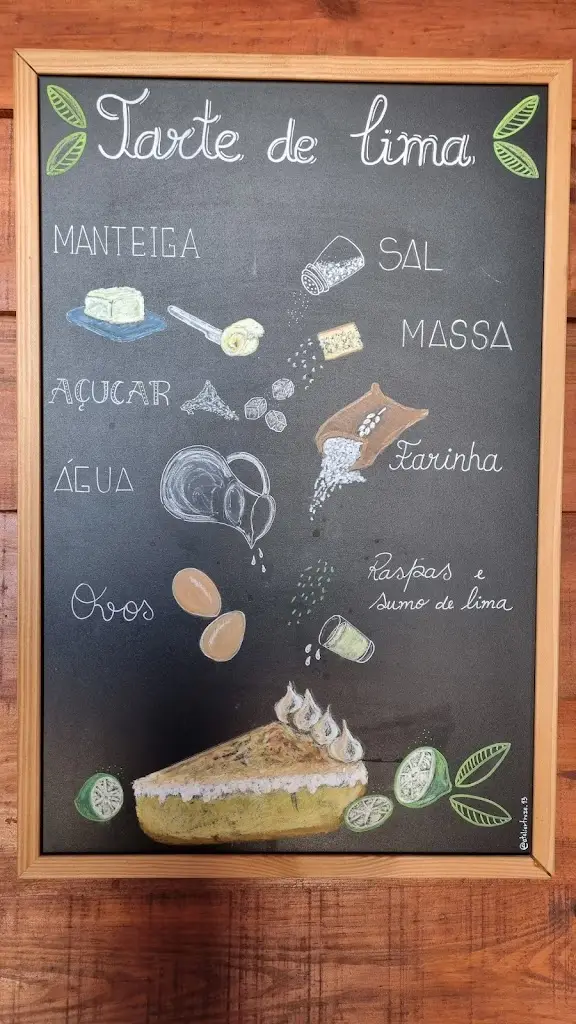 Tarte de lima
MANTEIGA
SAL
MASSA
AÇUCAR
Farinha
ÁGUA
Raspas e
sumo de lima
Ovos